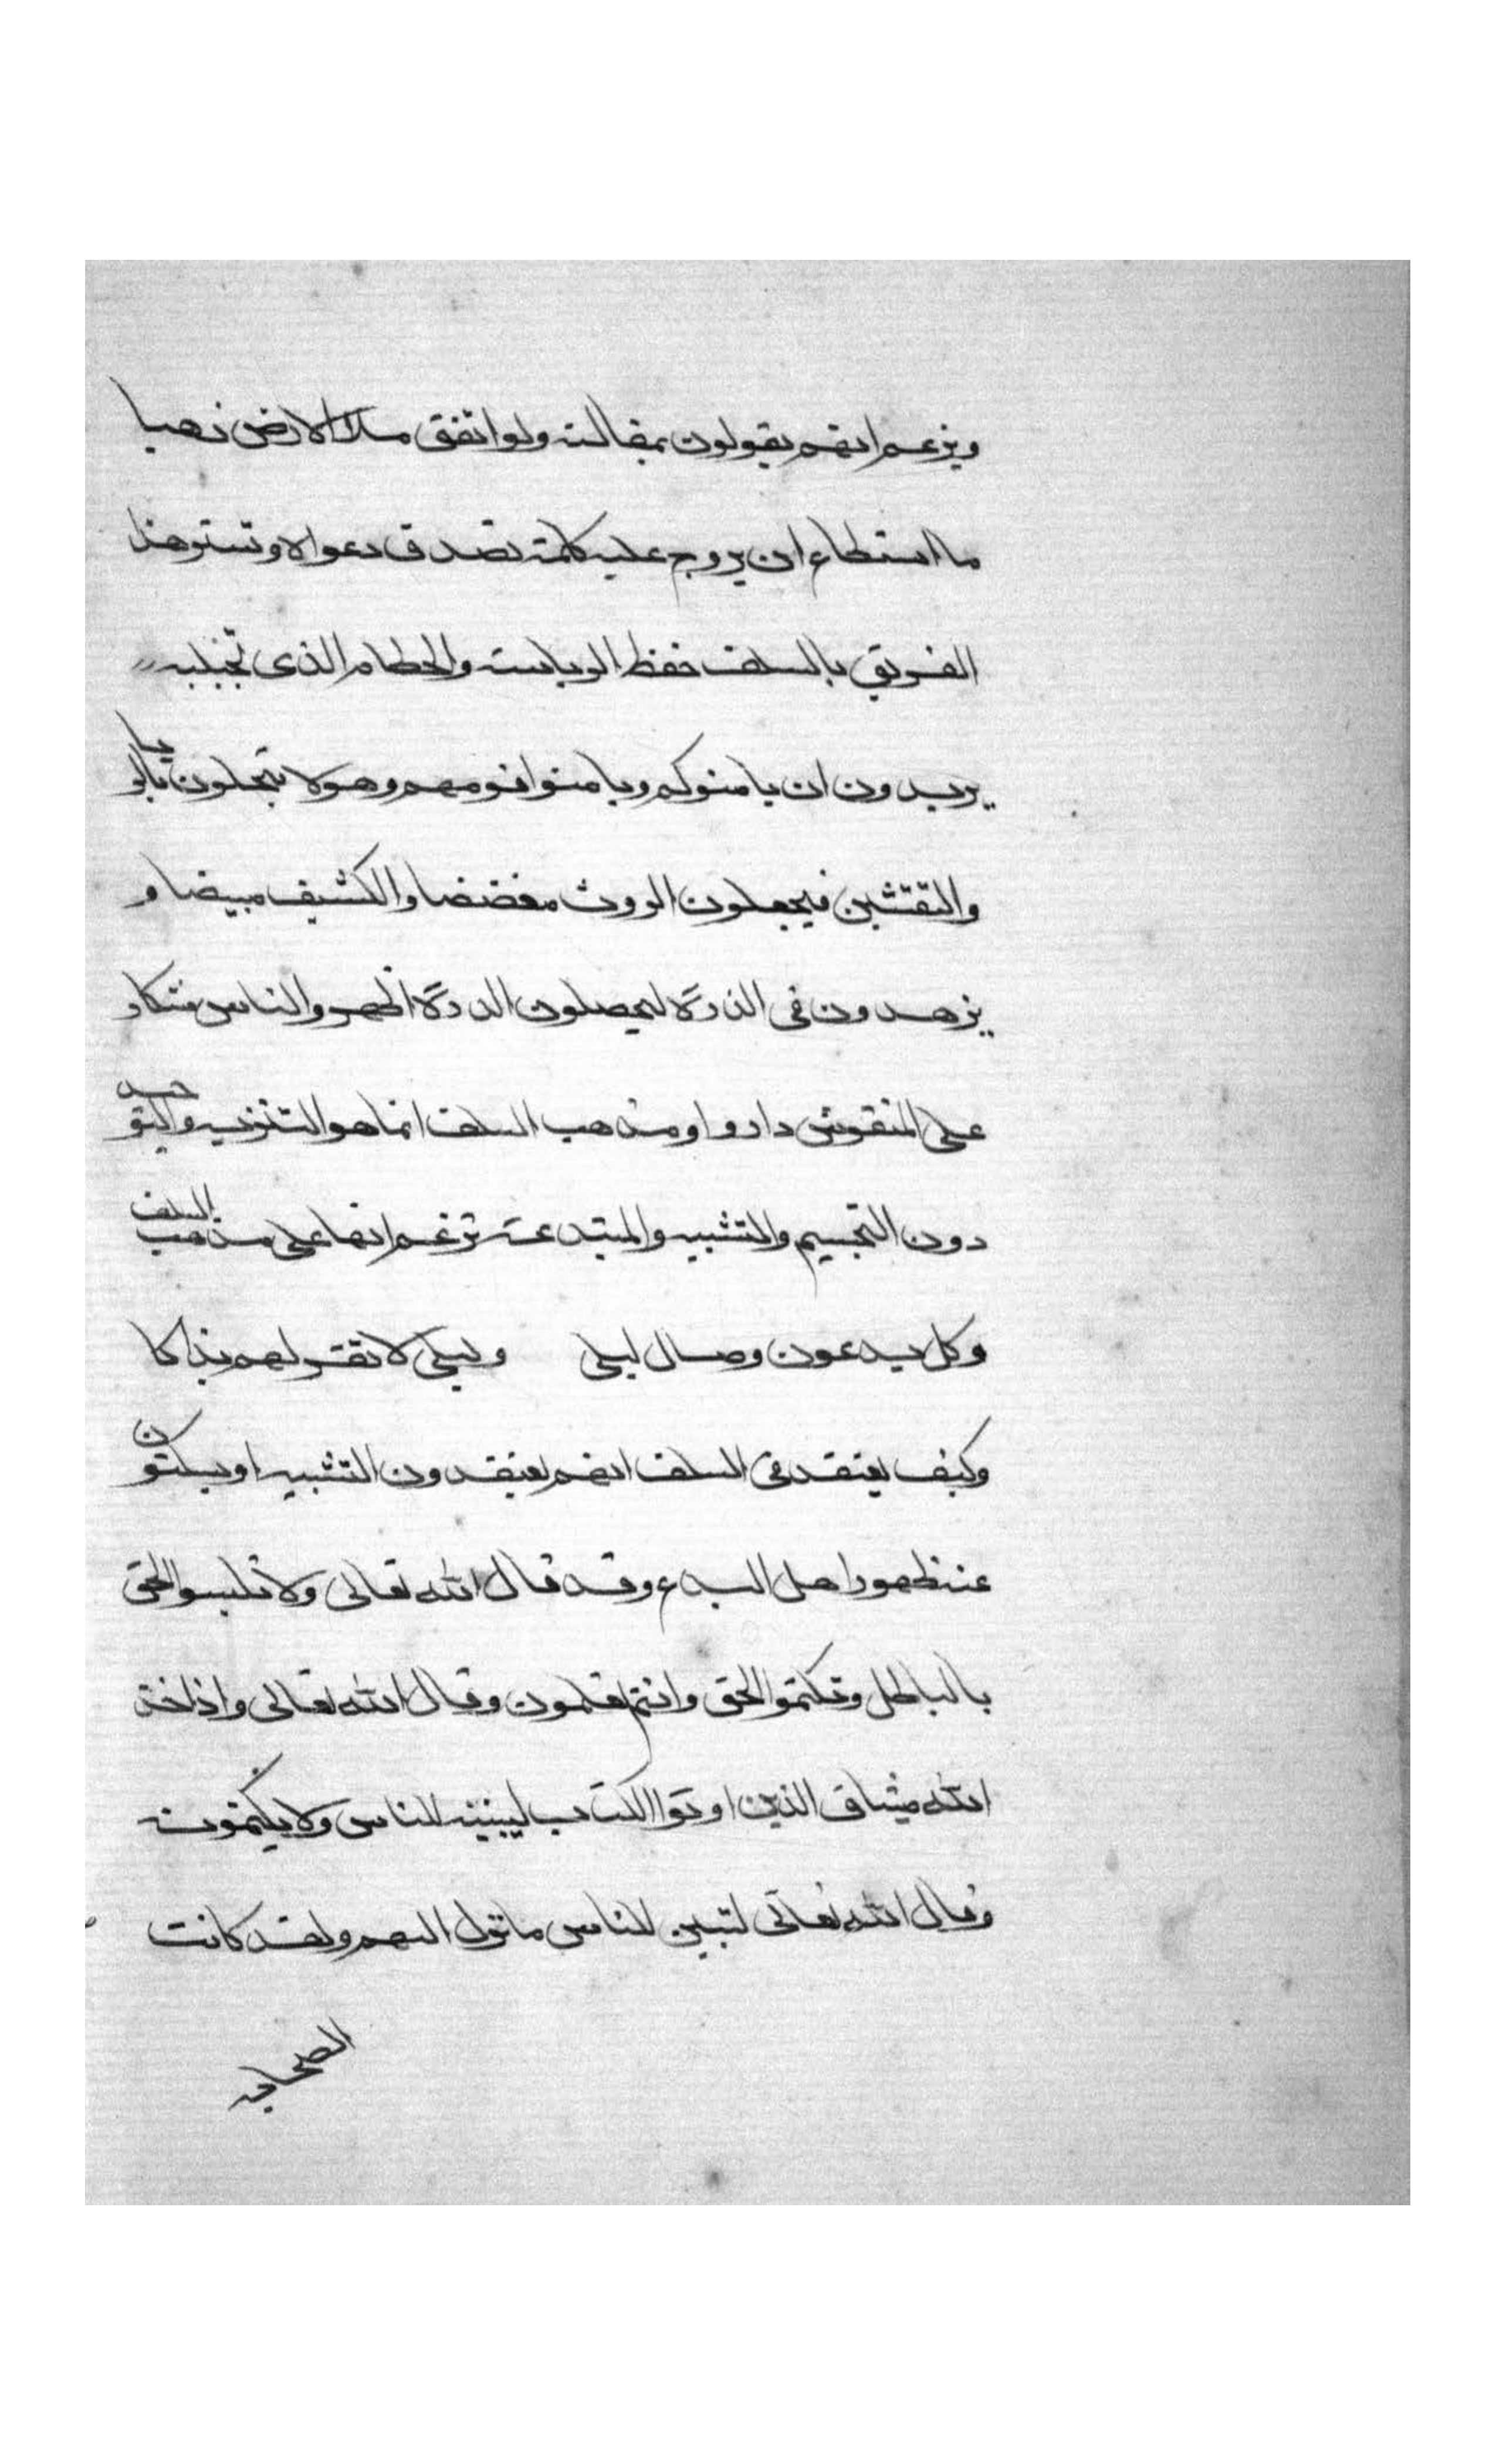 ويزعم انهم يقولون بمقالته ولو انفق ملا الارض ذهبا
ما استطاع ان يروج عليه كلمة تصدق دعواه وتستر هذا
الفريق بالسلف حفظا لرياسته والحطام الذى تجتلبه
يريدون ان يامنوكم ويامنوا قومهم وهولا يتحلون باليا
والتقشين فيجعلون الروث مفضضا والكنيف مبيضا و
يزهدون فى الذرة ليحصلون الدرة اظهر والناس منكا
على المنقوش داروا ومذهب السلف انما هو التنزيه والتوحيد
دون التجسيم والتشبيه والمبتدعة تزعم انها على مذهب السلف
وكل يدعون وصال ليلى وليلى لا تقر لهم بذاكا
وكيف يعتقد فى السلف انهم يعتقدون التشبيه او يسكتون
عند ظهور اهل البدع وقد قال الله تعالى ولا تلبسوا الحق
بالباطل وتكتموا الحق وانتم تعلمون وقال الله تعالى واذ اخذ
الله ميثاق الذين اوتوا الكتاب ليبيننه للناس ولا يكتمونه
وقال الله تعالى لتبين للناس ما نزل اليهم ولقد كانت
الصحابه